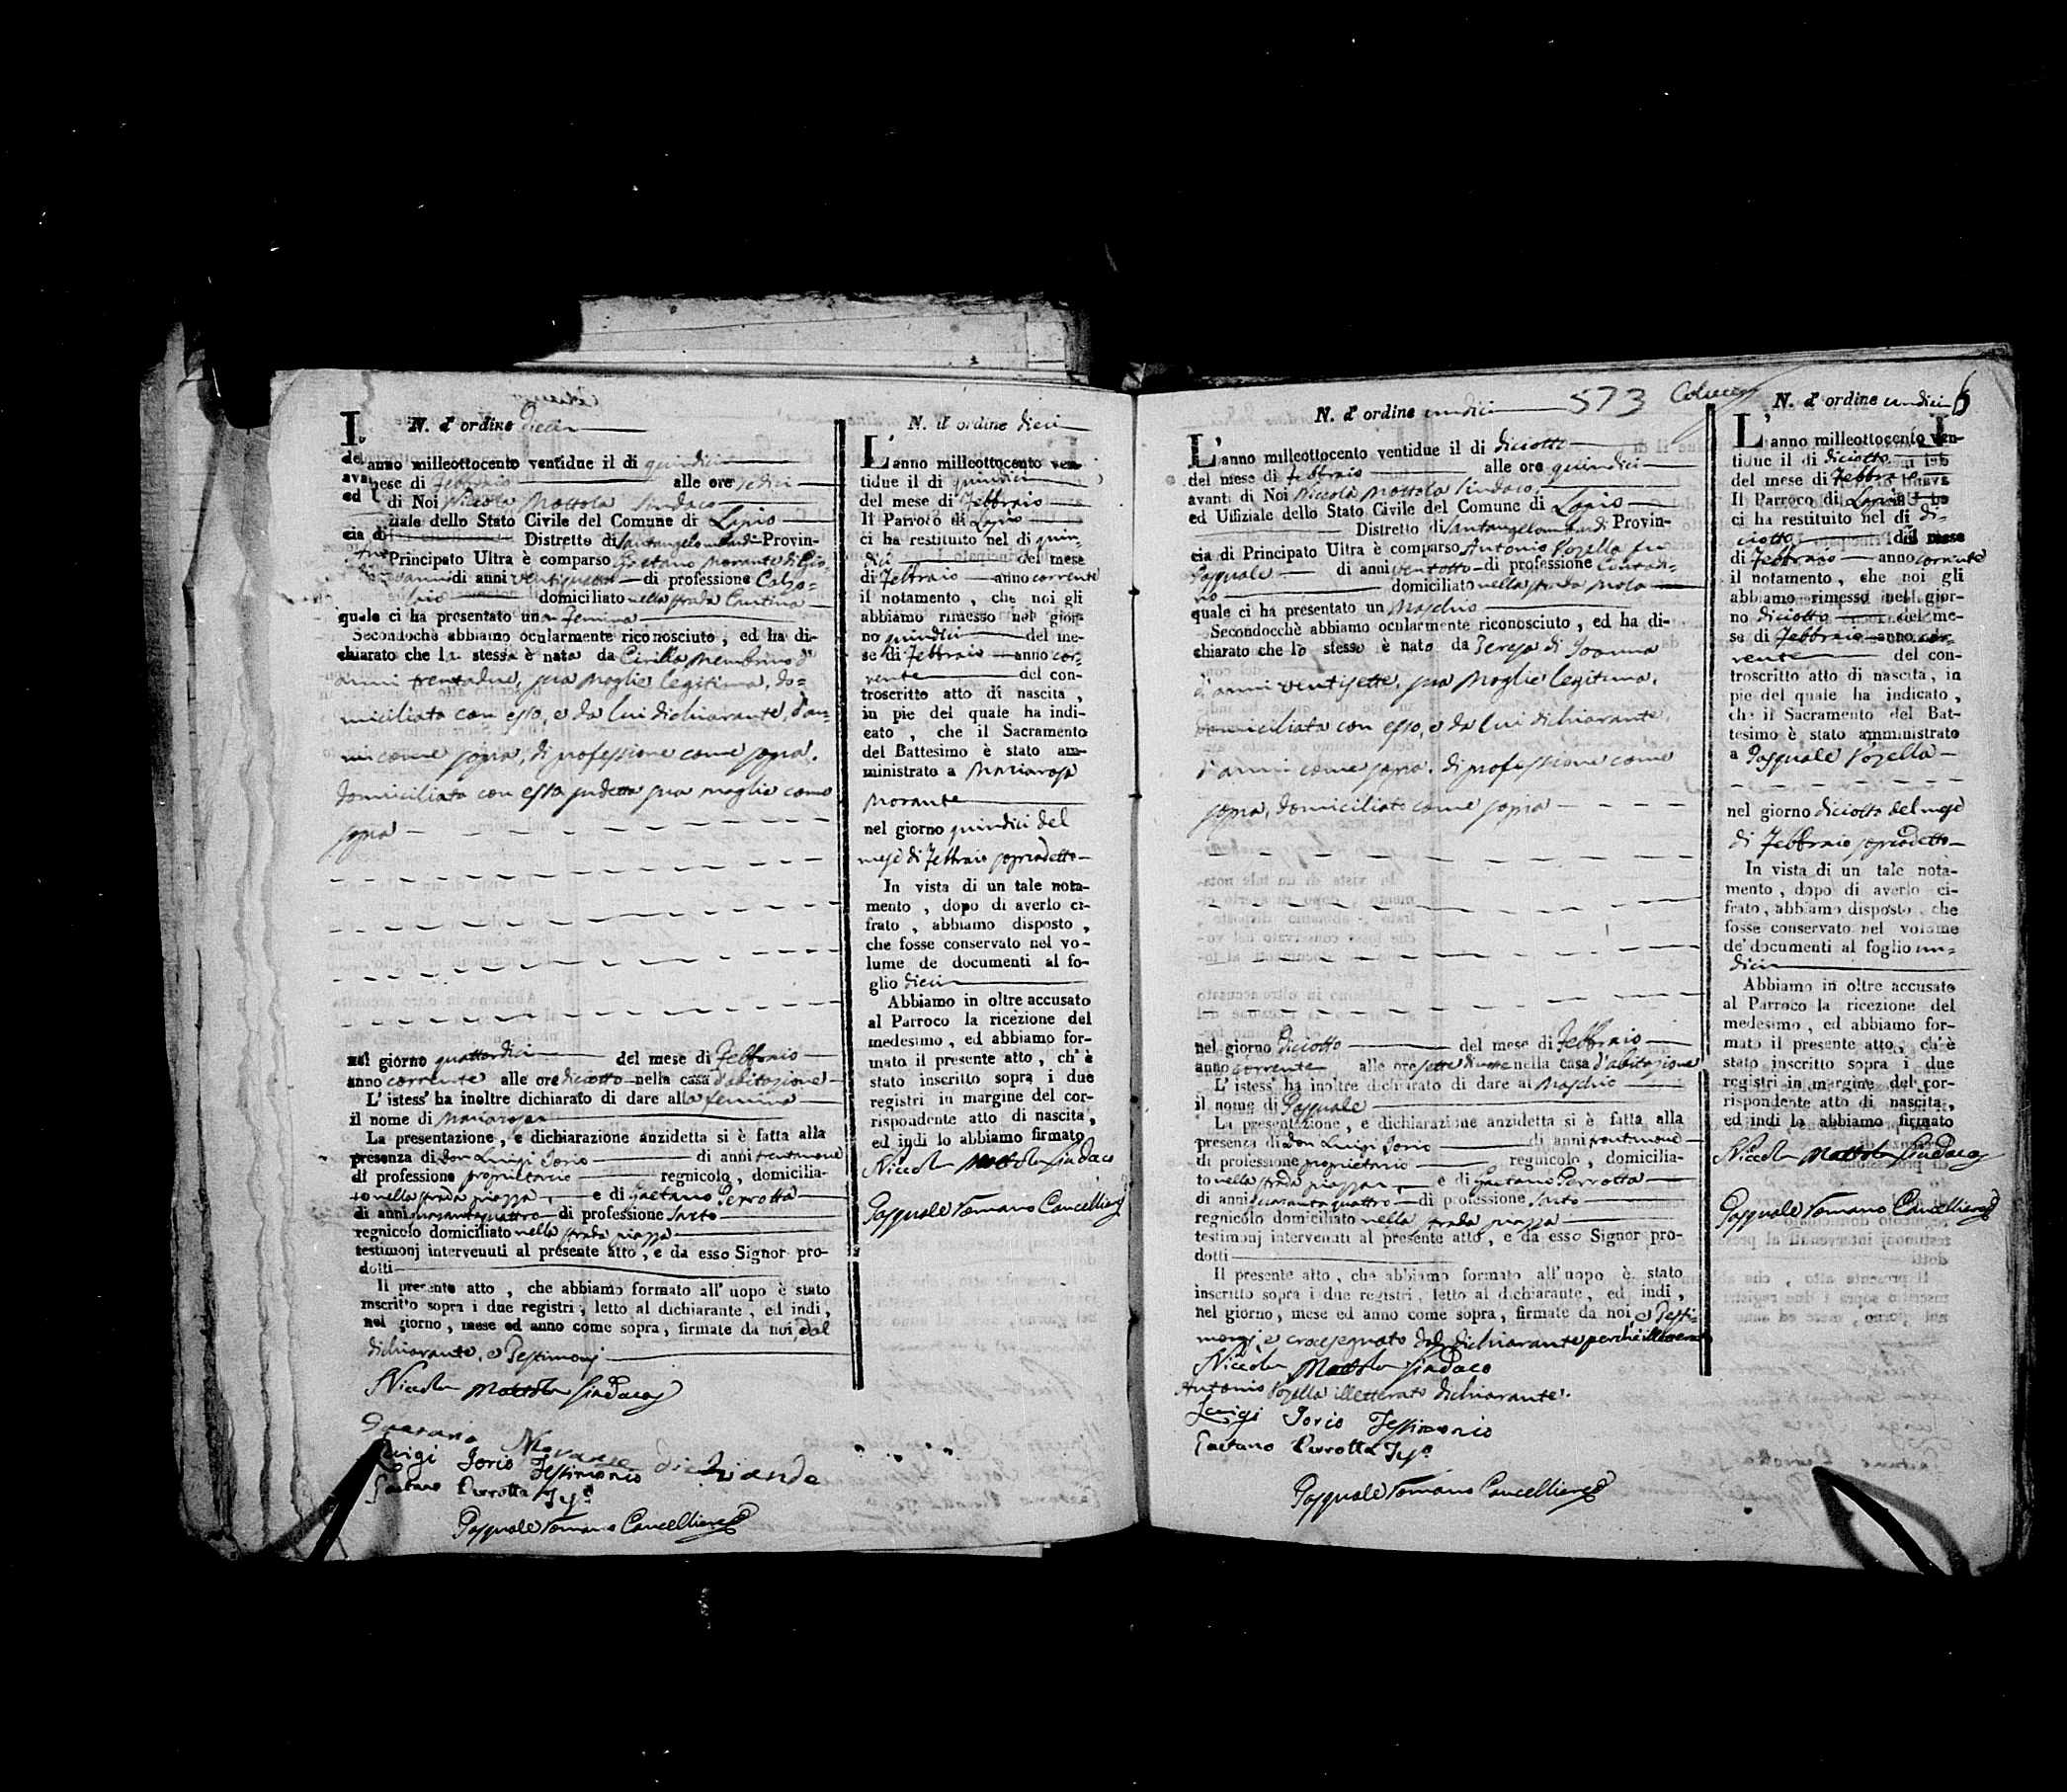 N. d' ordine Dieci
L'
anno milleottocento ventidue il di quindici
mese di Febbraio alle ore sedici
di Noi Niccola Mottola Sindaco
ziale dello Stato Civile del Comune di Lapio
Distretto di Santangelolombardi Provin-
cia di Principato Ultra è comparso Gaetano Morante di Gio-
vanni di anni ventiquattro di professione Calzo-
laio domiciliato nella strada Cantina
quale ci ha presentato una Femina
Secondochè abbiamo ocularmente riconosciuto , ed ha di-
chiarato che la stessa è nata da Cirilla Membrino d'
anni trentadue, sua Moglie legitima, do-
miciliata con esso, e da lui dichiarante, d'an-
ni come sopra, di professione come sopra.
domiciliato con essa sudetta sua moglie come
sopra
nel giorno quattordici del mese di Febbraio
anno corrente alle ore diciotto nella casa d'abitazione
L' istess' ha inoltre dichiarato di dare alla femina
il nome di Mariarosa
La presentazione , e dichiarazione anzidetta si è fatta alla
presenza di Don Luigi Iorio di anni trentanove
di professione proprietario regnicolo , domicilia-
to nella strada piazza, e di Gaetano Perrotta
di anni quarantaquattro di professione Sarto
regnicolo domiciliato nella strada piazza
testimonj intervenuti al presente atto , e da esso Signor pro-
dotti
Il presente atto , che abbiamo formato all' uopo è stato
inscritto sopra i due registri , letto al dichiarante , ed indi ,
nel giorno , mese ed anno come sopra , firmate da noi, dal
dichiarante, e Testimonj
Niccola Mottola Sindaco
Gaetano Morante dichiarande
Luigi Iorio Testimonio
Gaetano Perrotta Tes.o
Pasquale Romano Cancelliere
N. d' ordine dieci
L' anno milleottocento ven-
tidue il di quindici
del mese di Febbraio
Il Parroco di Lapio
ci ha restituito nel di quin-
dici del mese
di Febbraio anno corrente
il notamento , che noi gli
abbiamo rimesso nel gior-
no quindici del me-
se di Febbraio anno cor-
rente del con-
troscritto atto di nascita ,
in pie del quale ha indi-
cato , che il Sacramento
del Battesimo è stato am-
ministrato a Mariarosa
Morante
nel giorno quindici del
mese di Febbraio sopradetto
In vista di un tale nota-
mento , dopo di averlo ci-
frato , abbiamo disposto ,
che fosse conservato nel vo-
lume de documenti al fo-
glio dieci
Abbiamo in oltre accusato
al Parroco la ricezione del
medesimo , ed abbiamo for-
mato il presente atto , ch' è
stato inscritto sopra i due
registri in margine del cor-
rispondente atto di nascita ,
ed indi lo abbiamo firmato
Niccola Mottola Sindaco
Pasquale Romano Cancelliere
N. d' ordine undici 573
L' anno milleottocento ventidue il di diciotto
del mese di Febbraio alle ore quindici
avanti di Noi Niccola Mottola Sindaco,
ed Uffiziale dello Stato Civile del Comune di Lapio
Distretto di Santangelolombardi Provin-
cia di Principato Ultra è comparso Antonio Vozella fu
Pasquale di anni ventotto di professione Contadi-
no domiciliato nella strada Mola
quale ci ha presentato un Maschio
Secondocchè abbiamo ocularmente riconosciuto , ed ha di-
chiarato che lo stesso è nato da Teresa di Ioanna
d'anni ventisette, sua Moglie legitima,
domiciliata con esso, e da lui dichiarante,
d'anni come sopra. di professione come
sopra, domiciliato come sopra
nel giorno diciotto del mese di Febbraio
anno corrente alle ore nella casa d'abitazione
L' istess' ha inoltre dichiarato di dare al Maschio
il nome di Pasquale
La presentazione , e dichiarazione anzidetta si è fatta alla
presenza di Don Luigi Iorio di anni trentanove
di professione proprietario regnicolo , domicilia-
to nella strada piazza, e di Gaetano Perrotta
di anni quaranta quattro di professione Sarto
regnicolo domiciliato nella strada piazza
testimonj intervenuti al presente atto , e da esso Signor pro-
dotti
Il presente atto , che abbiamo formato all' uopo è stato
inscritto sopra i due registri , letto al dichiarante , ed indi ,
nel giorno , mese ed anno come sopra , firmate da noi, e Testi-
monj, e crocesegnato dal dichiarante perchè illetterato
Niccola Mottola Sindaco
Antonio Vozella illetterato dichiarante.
Luigi Iorio Testimonio
Gaetano Perrotta Tes.o
Pasquale Romano Cancelliere
N. d' ordine undici 6
L' anno milleottocento ven-
tidue il di diciotto
del mese di Febbraio
Il Parroco di Lapio
ci ha restituito nel di di-
ciotto del mese
di Febbraio anno corrente
il notamento , che noi gli
abbiamo rimesso nel gior-
no diciotto del me-
se di Febbraio anno cor-
rente del con-
troscritto atto di nascita , in
pie del quale ha indicato ,
che il Sacramento del Bat-
tesimo è stato amministrato
a Pasquale Vozella
nel giorno diciotto del mese
di Febbraio sopradetto
In vista di un tale nota-
mento , dopo di averlo ci-
frato , abbiamo disposto , che
fosse conservato nel volume
de' documenti al foglio un-
dici
Abbiamo in oltre accusato
al Parroco la ricezione del
medesimo , ed abbiamo for-
mato il presente atto , ch' è
stato inscritto sopra i due
registri in margine del cor-
rispondente atto di nascita ,
ed indi lo abbiamo firmato
Niccola Mottola Sindaco
Pasquale Romano Cancelliere